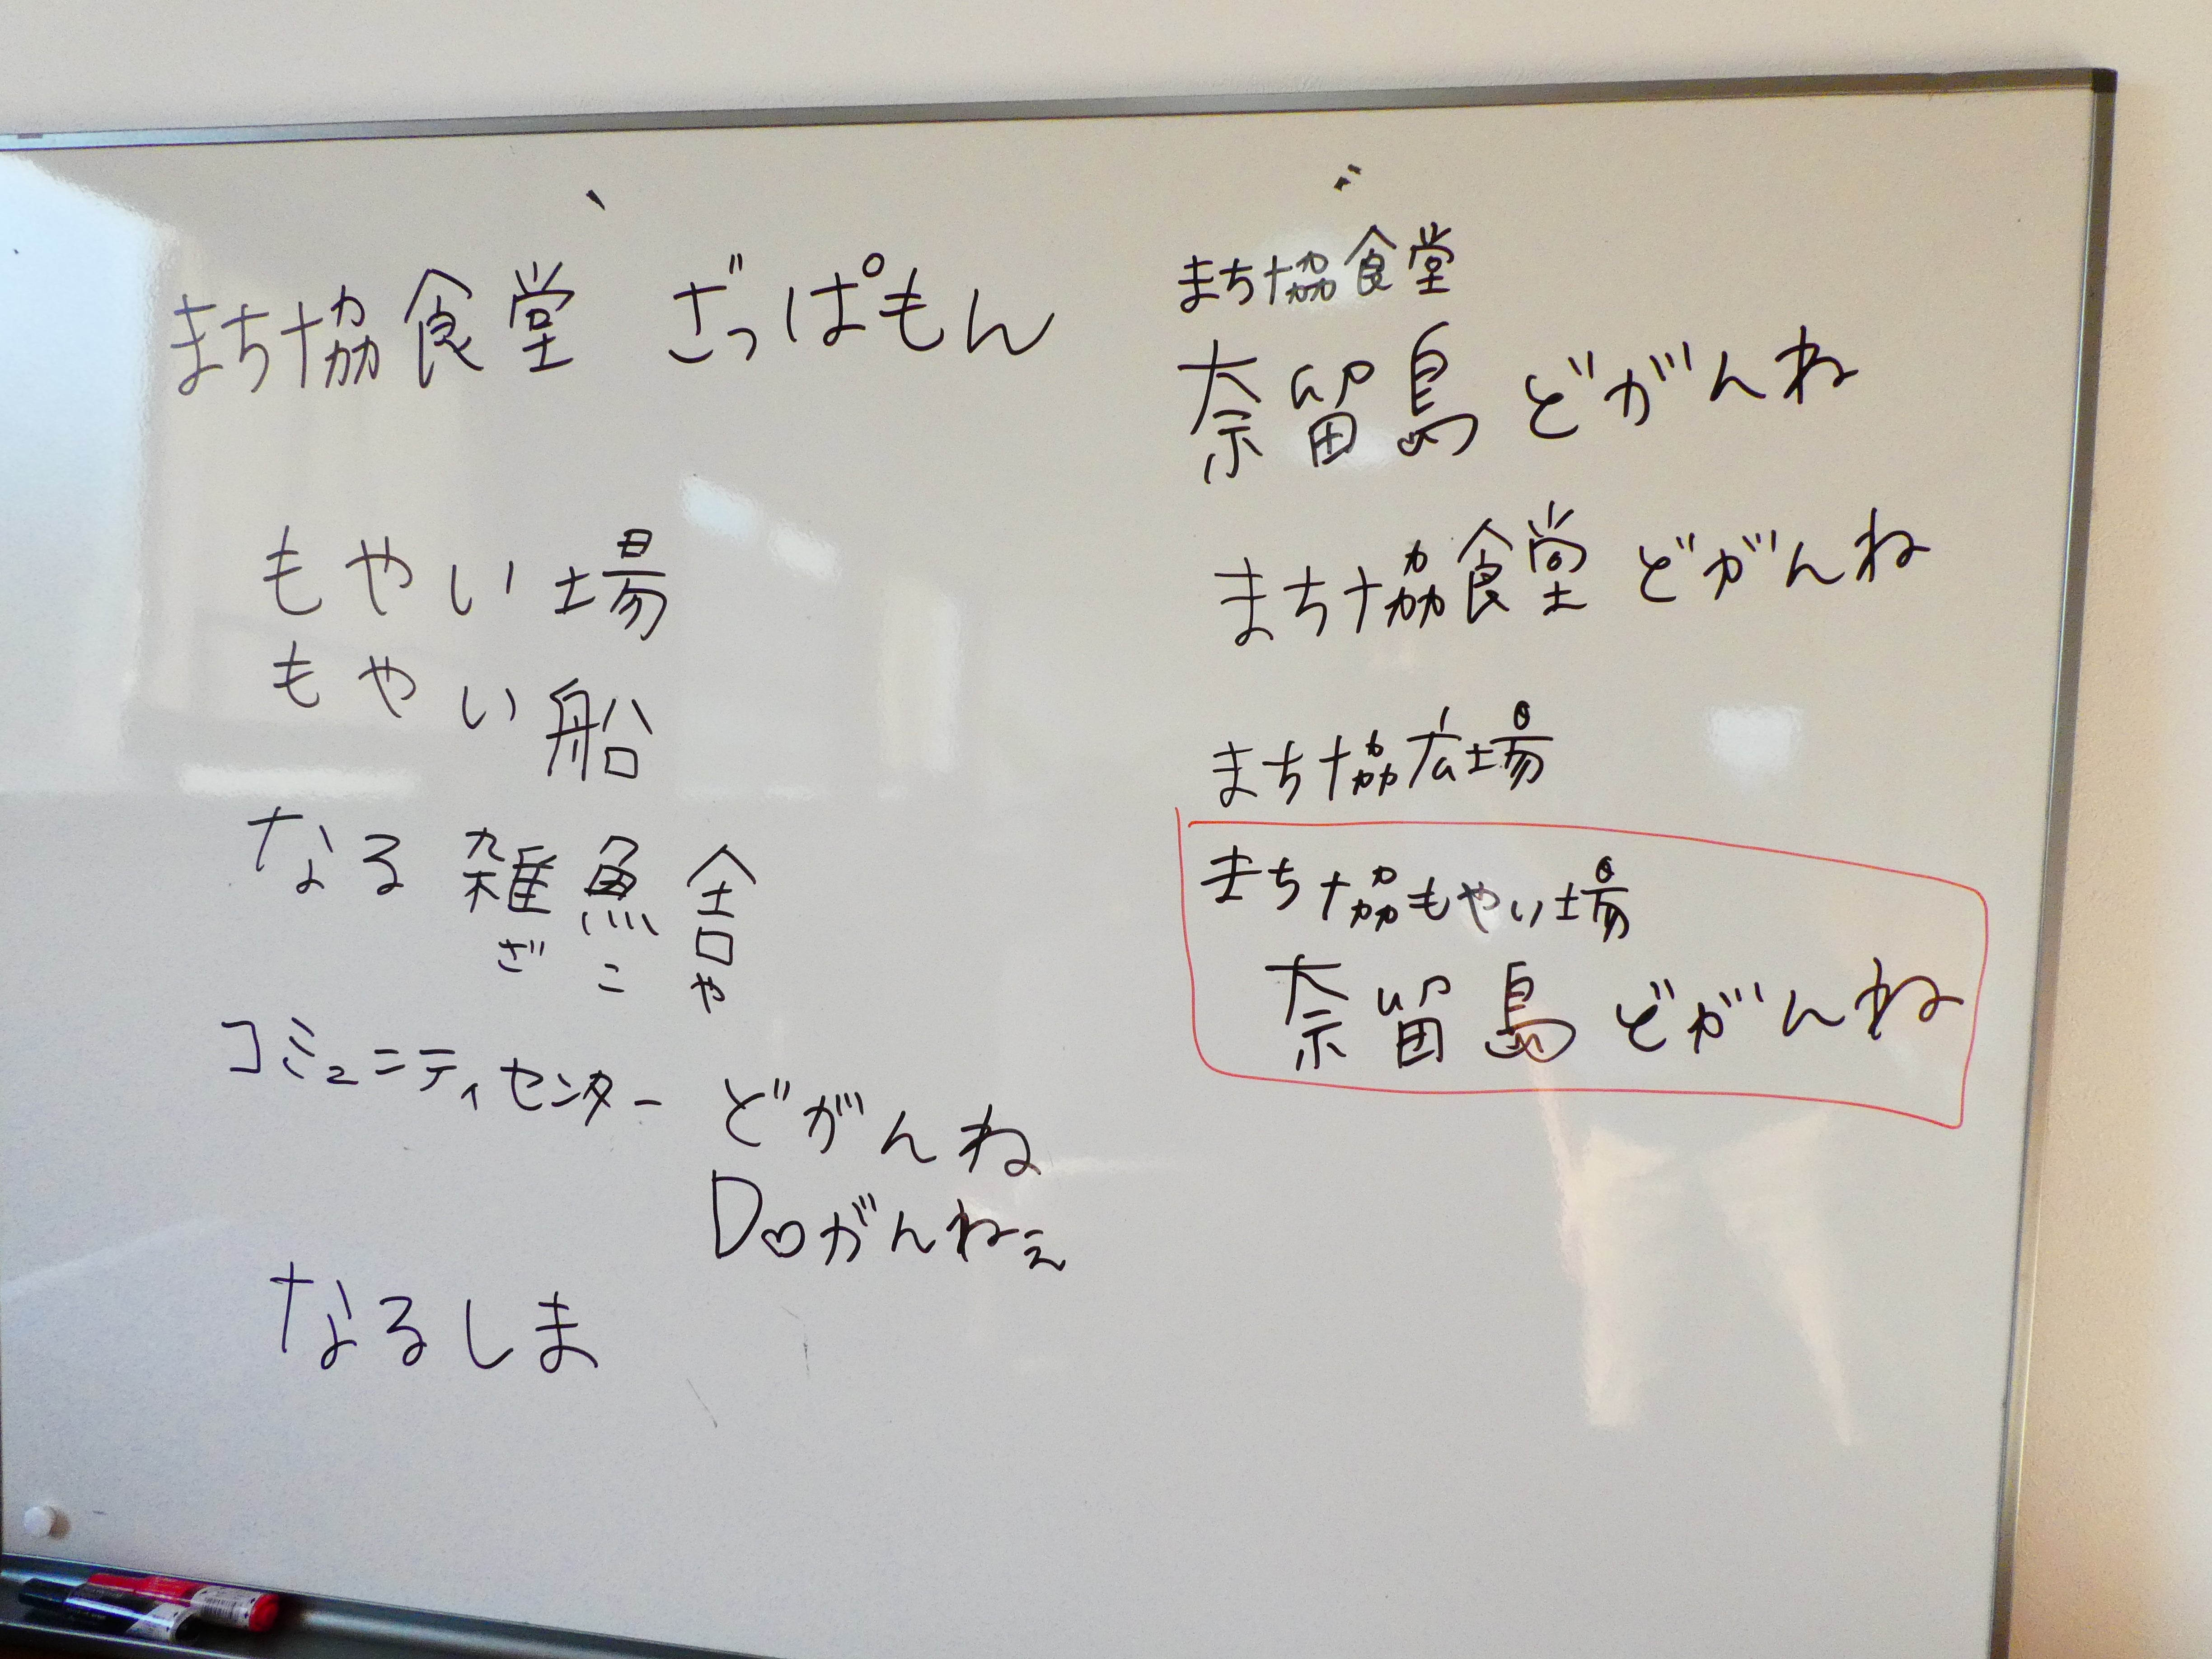 まち協食堂 ざっぱもん
もやい場
もやい船
なる 雑魚舎
ざこや
コミュニティセンター どがんね
Doがんねぇ
なるしま
まち協食堂
奈留島 どがんね
まち協食堂 どがんね
まち協広場
まち協もやい場
奈留島 どがんね